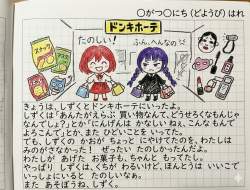 〇がつ〇にち(どようび) はれ
ドンキホーテ
たのしい!
ふん、へんなの
スナック
きょうは、しずくとドンキホーテにいったよ。
しずくは「あんたがえらぶ 買い物なんて、どうせろくなもんじゃ
なんでしょ」とか「にんげんは かないいねえ、こんなもんで
よろこんて」とか、また ひどいことを いってた。
でも、しずくの かおが ちょっと にやけてたのを、わたしは
みのがさなかった! ぜったい たのしかったんだよ。
わたしが あげた お菓子も、ちゃんと もってたし。
やっぱり しずくは、くちが わるいけど、ほんとうは いいこで
いっしょにいると たのしいなぁ。
また あそぼうね、しずく。